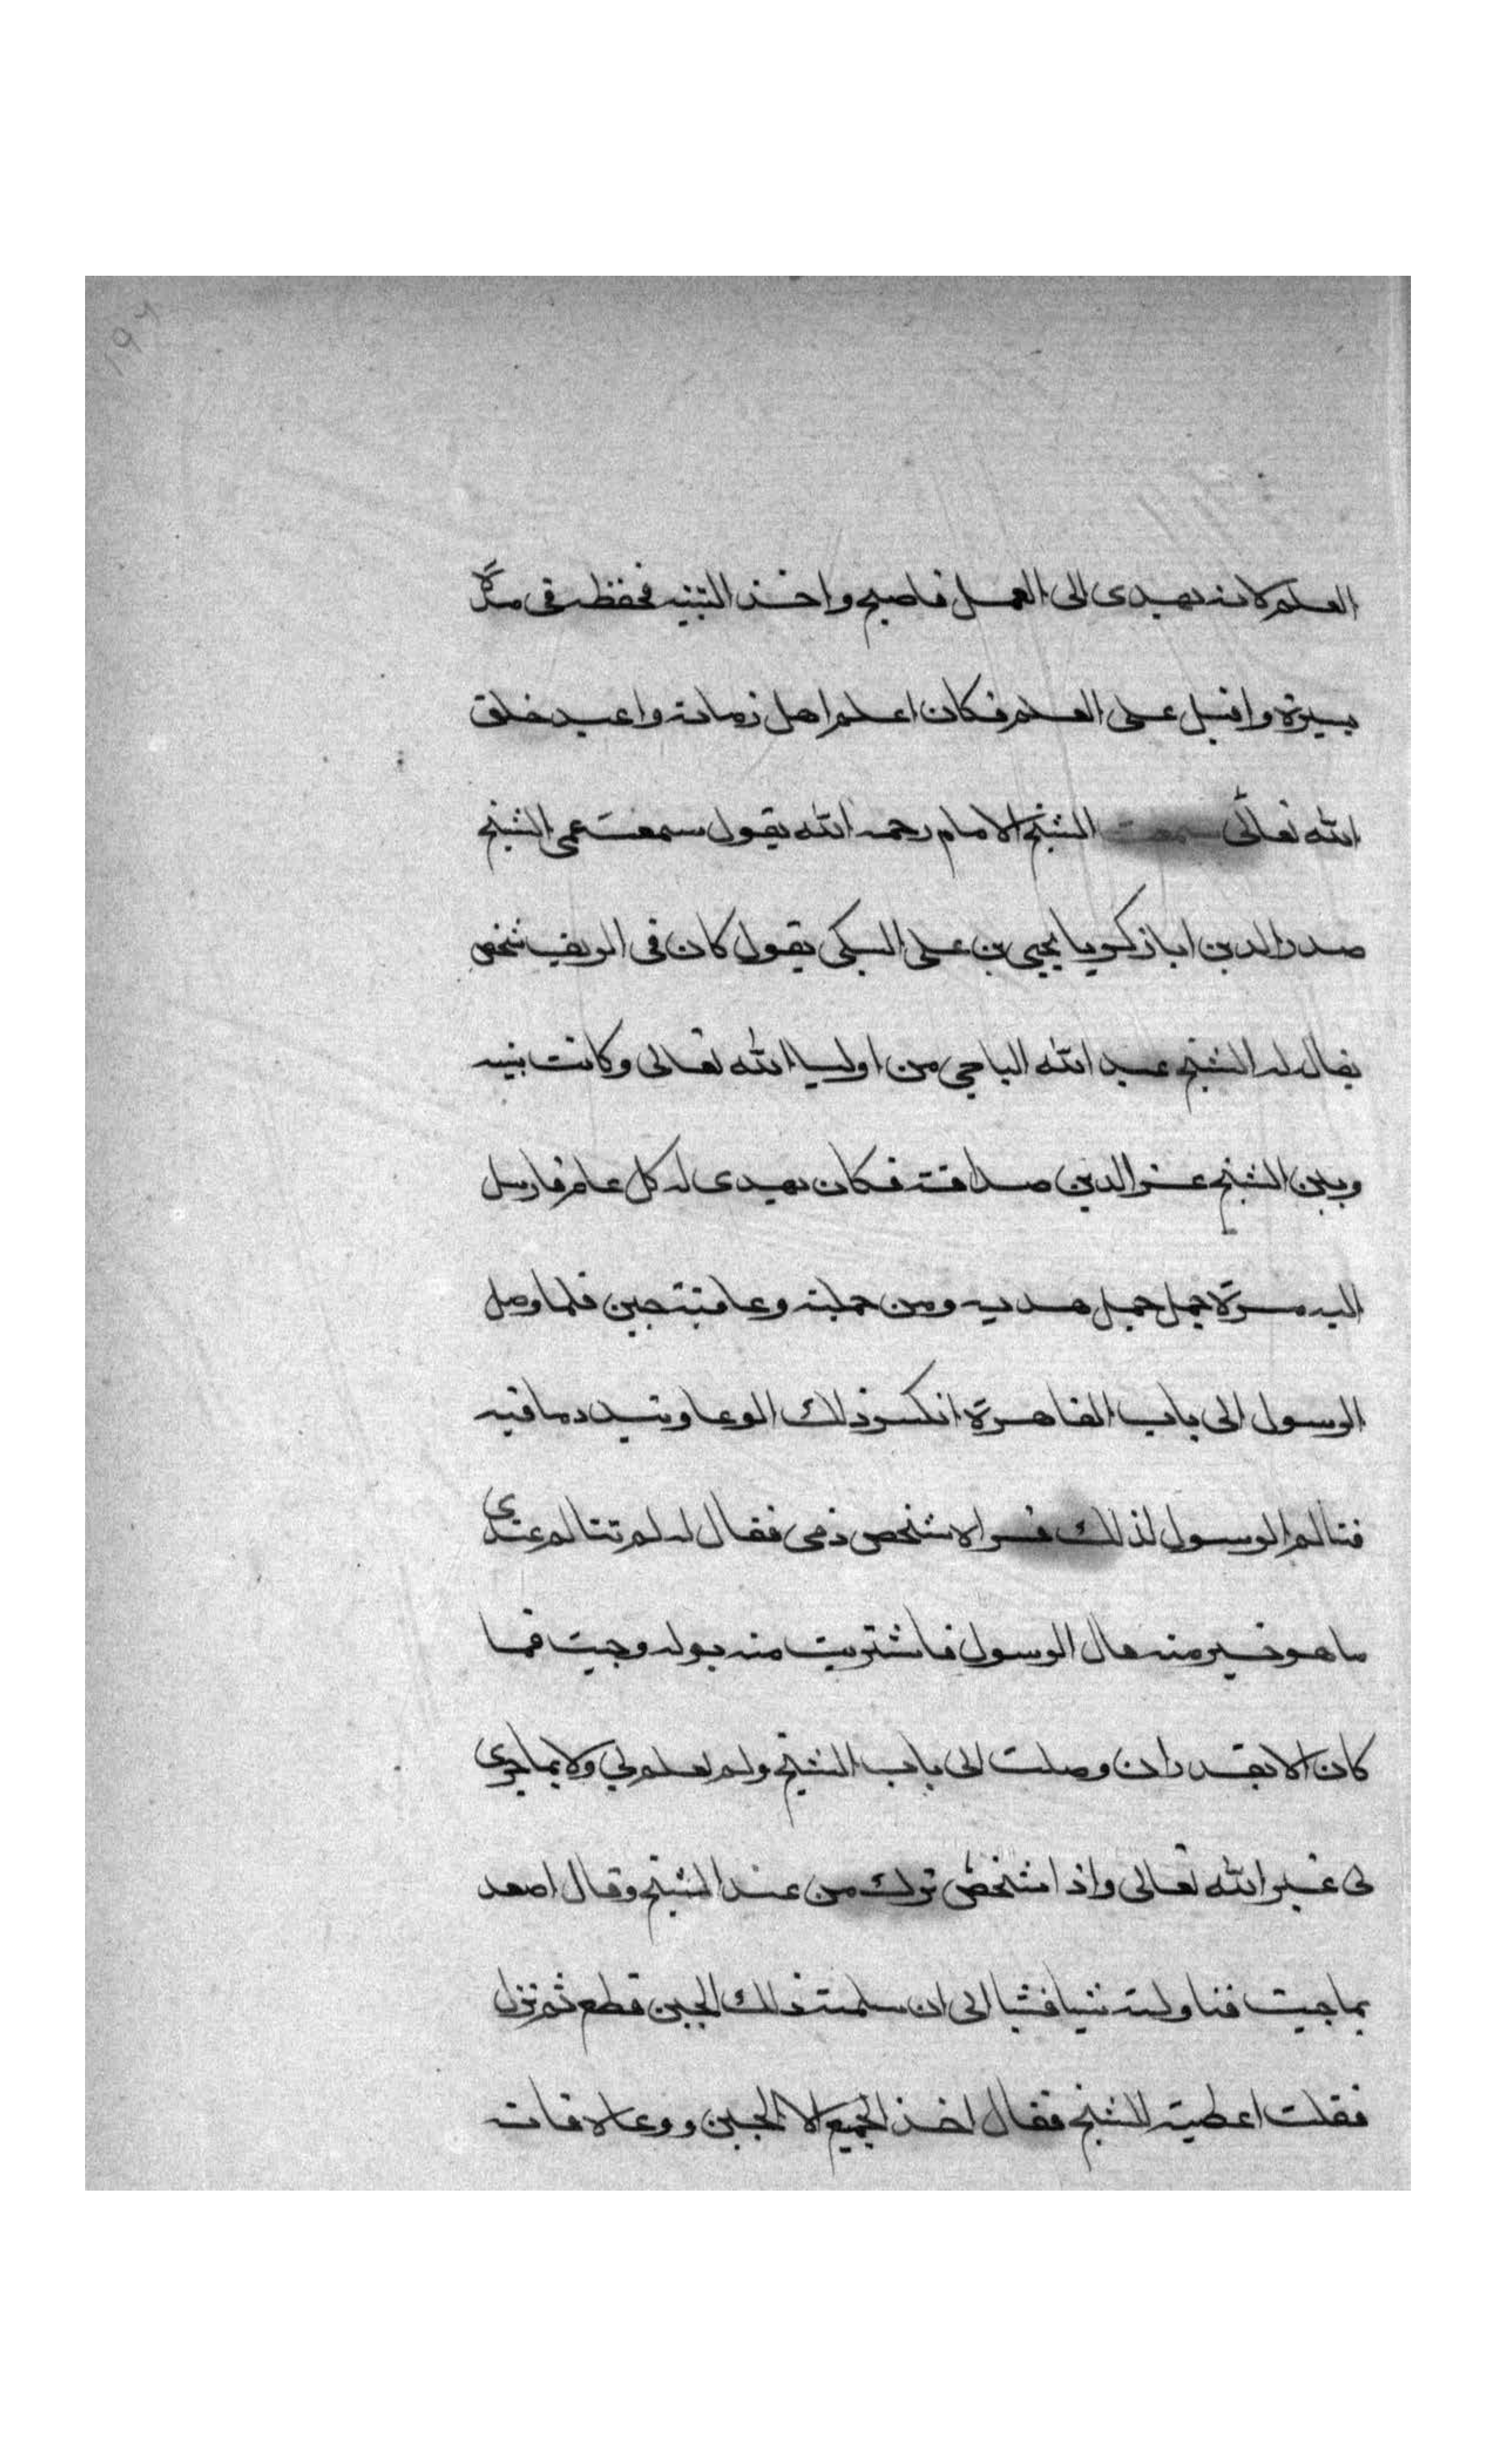 العلم لانه يهدى الى العمل فاصبح واخذ التنبيه فحفظه فى مدة
يسيرة واقبل على العلم فكان اعلم اهل زمانه واعبد خلق
الله تعالى سمعت الشيخ الامام رحمه الله يقول سمعت عمى الشيخ
صدر الدين ابا زكريا يحيى بن على السبكى يقول كان فى الريف شخص
يقال له الشيخ عبد الله البلاجى من اوليا الله تعالى وكانت بينه
وبين الشيخ عز الدين صداقة فكان يهدى له كل عام فارسل
اليه مرة حمل جمل هديه ومن جملته وعا فيه جبن فلما وصل
الرسول الى باب القاهرة انكسر ذلك الوعا وتبدد ما فيه
فتالم الرسول لذلك فراه شخص ذمى فقال له لم تتالم عندى
ما هو خير منه قال الرسول فاشتريت منه بدله وجيت فما
كان الا بقدر ان وصلت الى باب الشيخ ولم يعلم بى ولا بما جرى
لى غير الله تعالى واذا شخص نزل من عند الشيخ وقال اصعد
بما جيت فناولته شيا فشيا الى ان سلمته ذلك الجبن فطلع ثم نزل
فقلت اعطيته للشيخ فقال اخذ الجميع الا الجبن ووعاه فانه